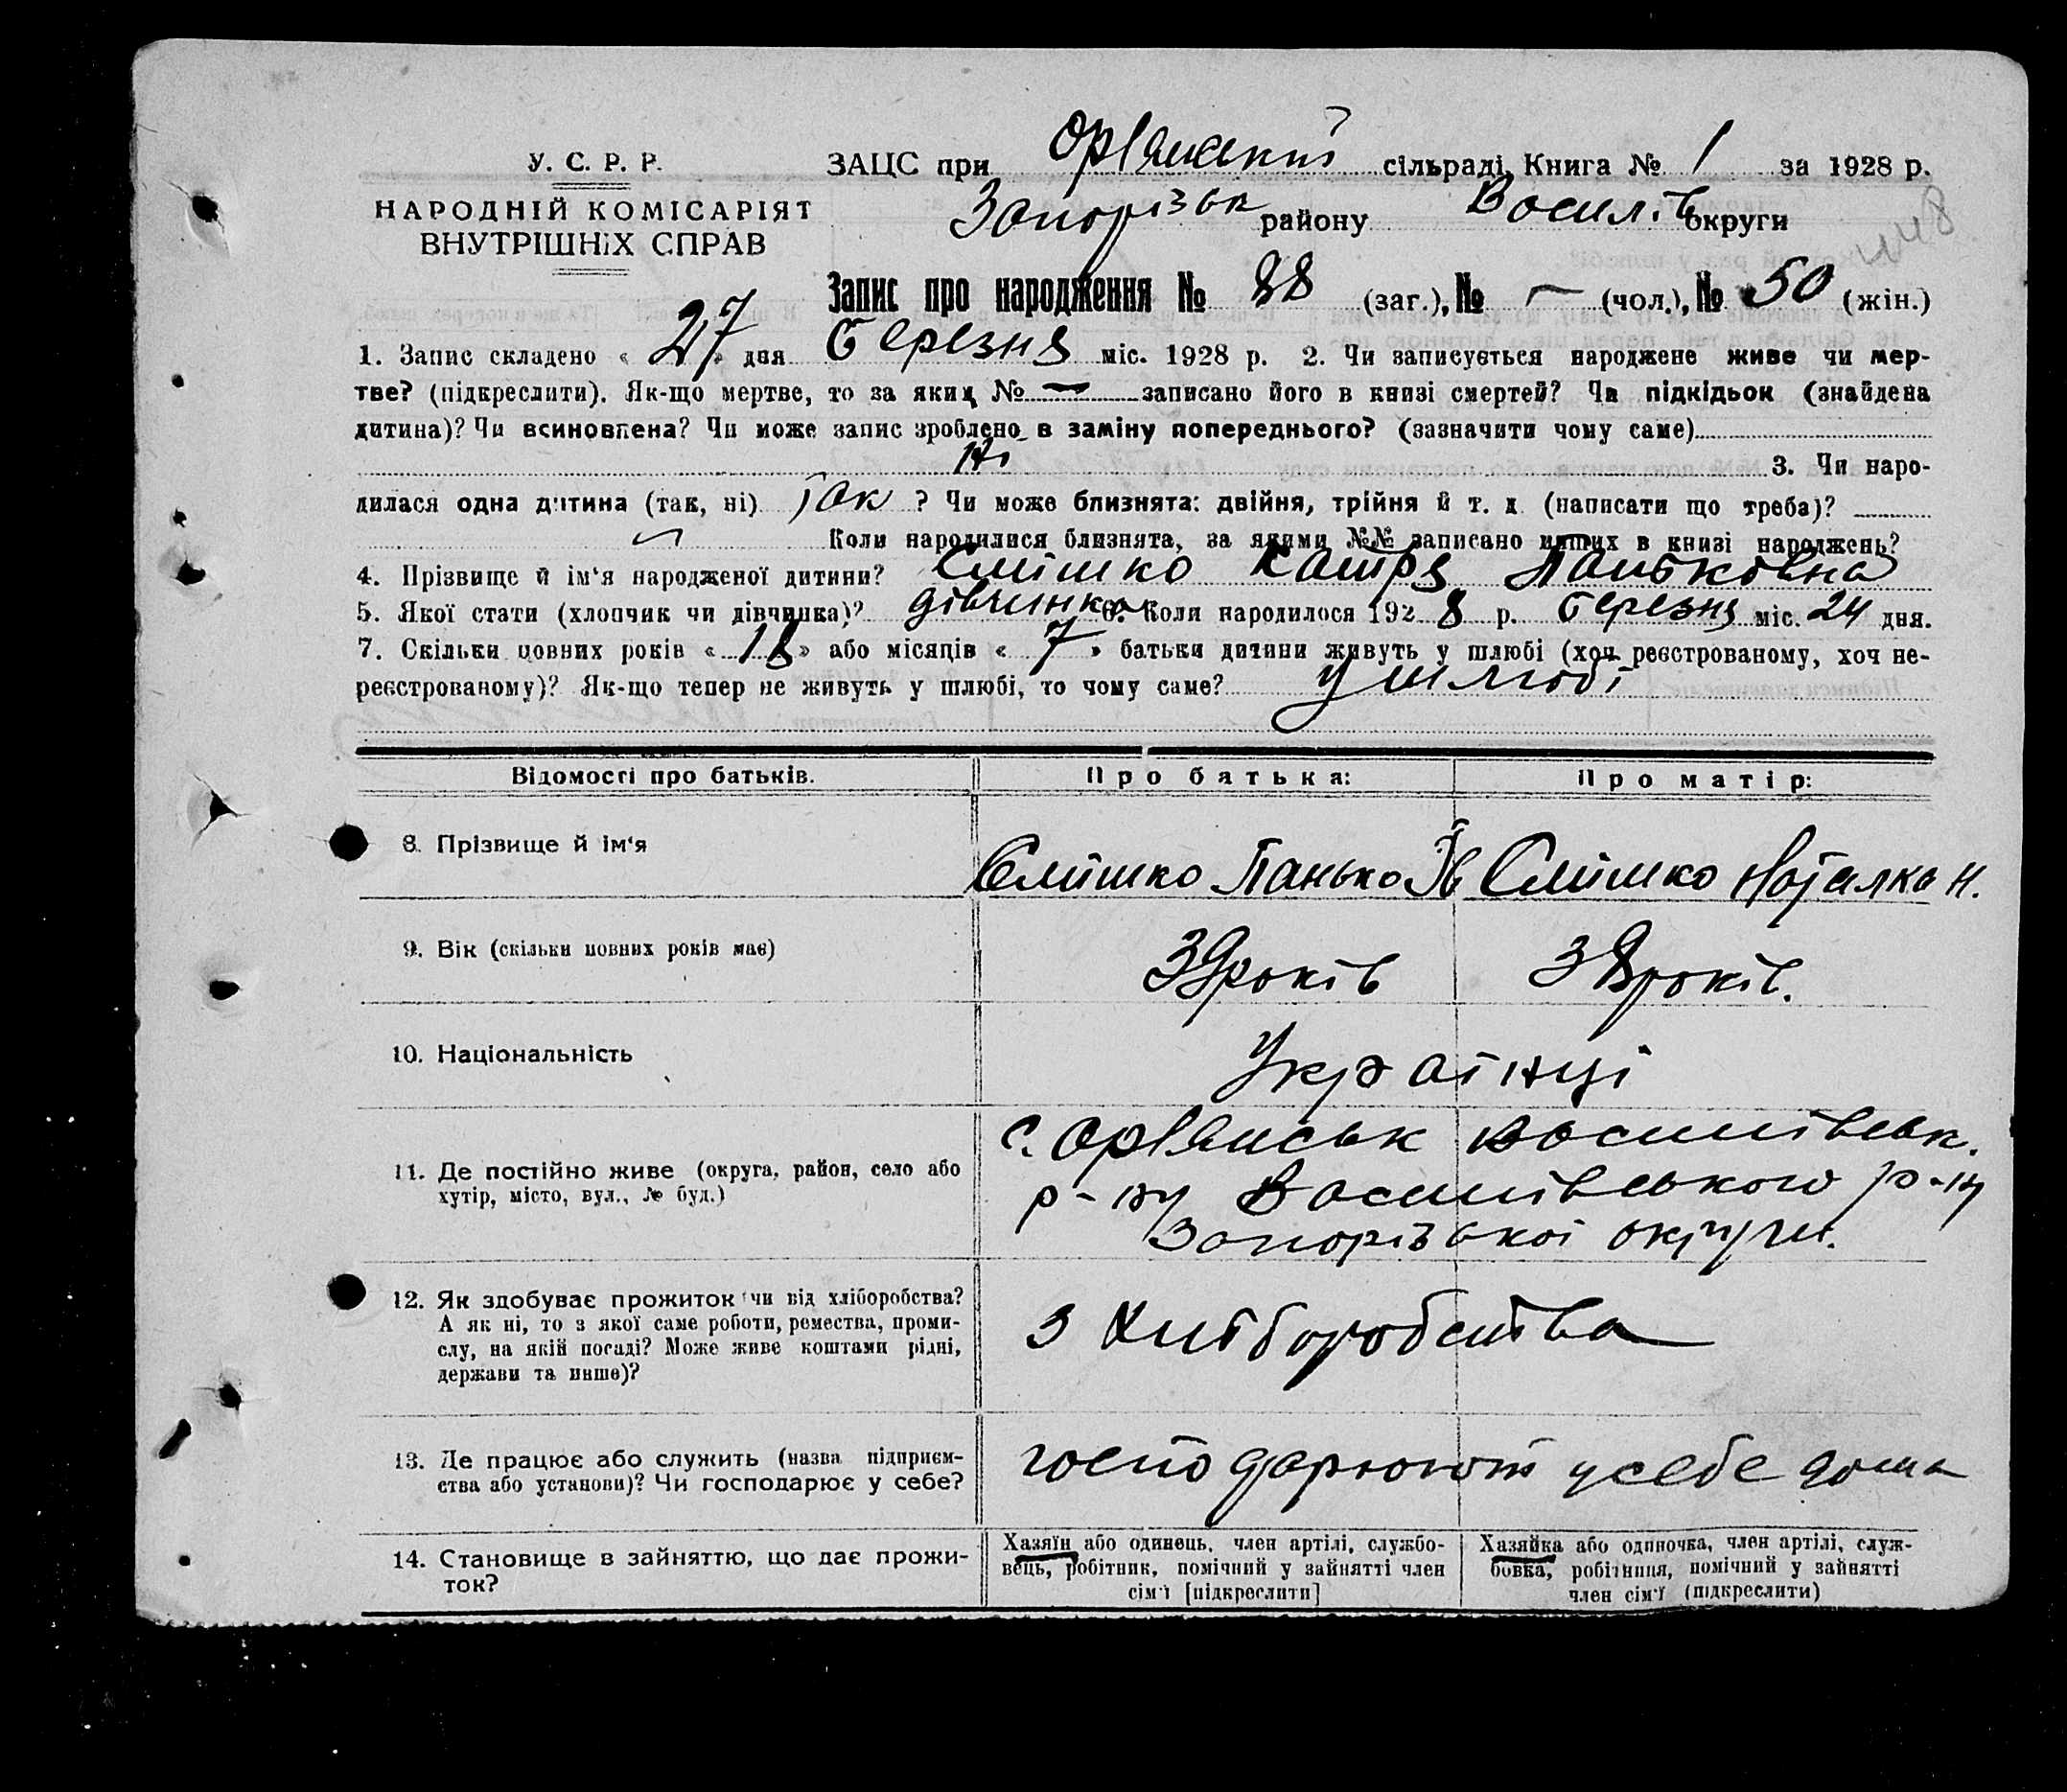 У. С. Р. Р.
НАРОДНІЙ КОМІСАРІЯТ
ВНУТРІШНІХ СПРАВ
ЗАЦС при Орлянській сільраді, Книга № 1 за 1928 р.
Запорізьк району Васил.ів округи
Запис про народження № 88 (заг.), № — (чол.), № 50 (жін.)
1. Запис складено « 27 » дня Березня міс. 1928 р. 2. Чи записується народжене живе чи мер-
тве? (підкреслити). Як-що мертве, то за яким № — записано його в книзі смертей? Чи підкідьок (знайдена
дитина)? Чи всиновлена? Чи може запис зроблено в заміну попереднього? (зазначити чому саме)
Ні 3. Чи наро-
дилася одна дитина (так, ні) так ? Чи може близнята: двійня, трійня й т. д. (написати що треба)?
Коли народилися близнята, за якими №№ записано инших в книзі народжень?
4. Прізвище й ім'я народженої дитини? Сліпшко Катря Паньковна
5. Якої стати (хлопчик чи дівчинка)? дівчинка 6. Коли народилося 1928 р. березня міс. 24 дня.
7. Скільки повних років « 18 » або місяців « 7 » батьки дитини живуть у шлюбі (хоч реєстрованому, хоч не-
реєстрованому)? Як-що тепер не живуть у шлюбі, то чому саме? у шлюбі
Відомості про батьків. Про батька: Про матір:
8. Прізвище й ім'я Сліпшко Панько Сліпшко Наталка Н.
9. Вік (скільки повних років має) 39 років 38 років.
10. Національність Українці
11. Де постійно живе (округа, район, село або
хутір, місто, вул., № буд.)
с. Орлянськ Василівськ.
р-ну Василівського р-ну
Запорізької округи.
12. Як здобуває прожиток чи від хліборобства?
А як ні, то з якої саме роботи, ремества, проми-
слу, на якій посаді? Може живе коштами рідні,
держави та инше)?
З хліборобства
13. Де працює або служить (назва підприєм-
ства або установи)? Чи господарює у себе?
господарюють у себе дома
14. Становище в зайняттю, що дає прожи-
ток?
Хазяїн або одинець, член артілі, службо-
вець, робітник, помічний у зайнятті член
сім'ї [підкреслити]
Хазяйка або одиночка, член артілі, служ-
бовка, робітниця, помічний у зайнятті
член сім'ї (підкреслити)